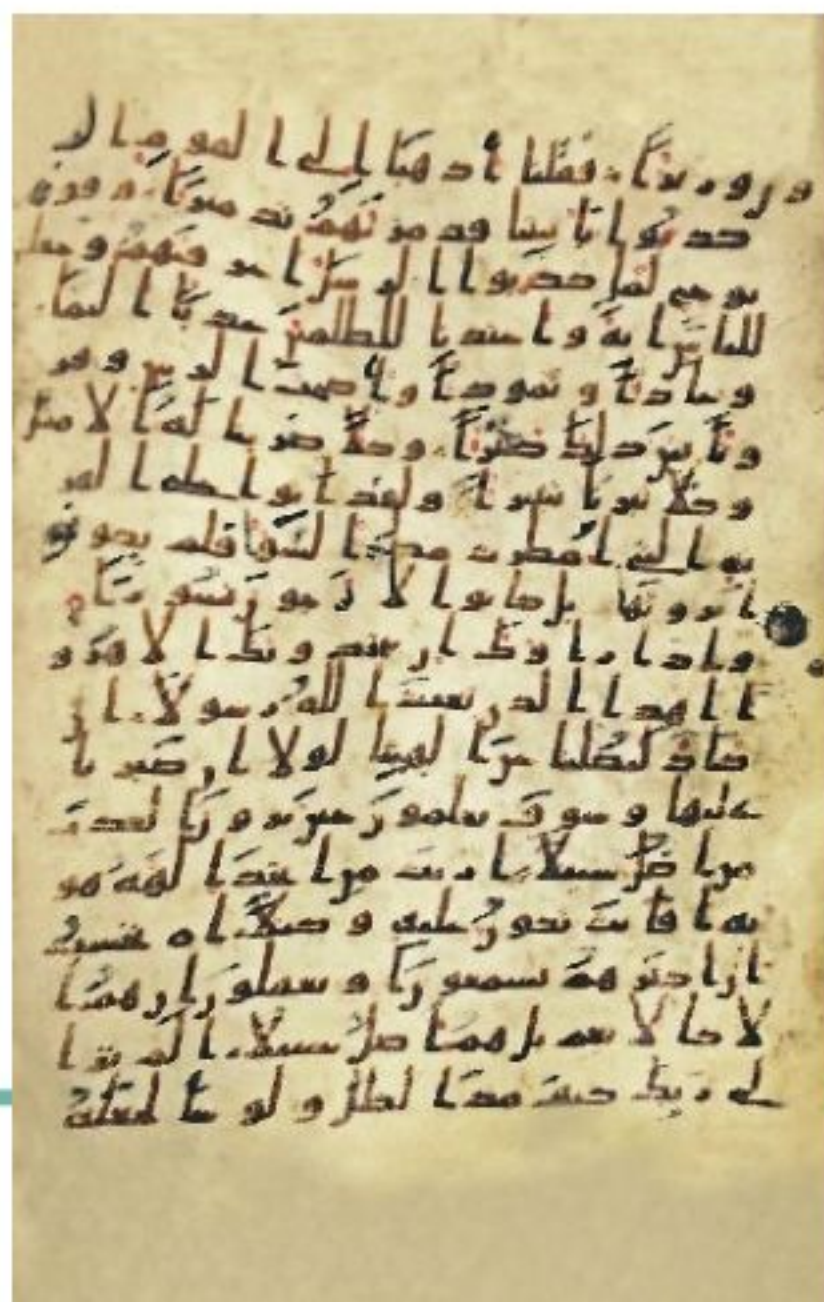 رون وزيرا فقلنا اذهبا الى القوم الذين
كذبوا بايتنا فدمرنهم تدميرا وقوم
نوح لما كذبوا الرسل اغرقنهم وجعلنهم
للناس اية واعتدنا للظلمين عذابا اليما
وعادا وثمودا واصحب الرس وقر
ونا بين ذلك كثيرا وكلا ضربنا له الامثل
وكلا تبرنا تتبيرا ولقد اتوا على القر
ية التى امطرت مطر السوء افلم يكونو
ا يرونها بل كانوا لا يرجون نشورا
واذا راوك ان يتخذونك الا هزو
ا اهذا الذى بعث الله رسولا ان
كاد ليضلنا عن الهتنا لولا ان صبرنا
عليها وسوف يعلمون حين يرون العذب
من اضل سبيلا اريت من اتخذ الهه هو
يه افانت تكون عليه وكيلا ام تحسب
ان اكثرهم يسمعون او يعقلون ان هم ا
لا كالانعم بل هم اضل سبيلا الم تر ا
لى ربك كيف مد الظل ولو شا لجعله